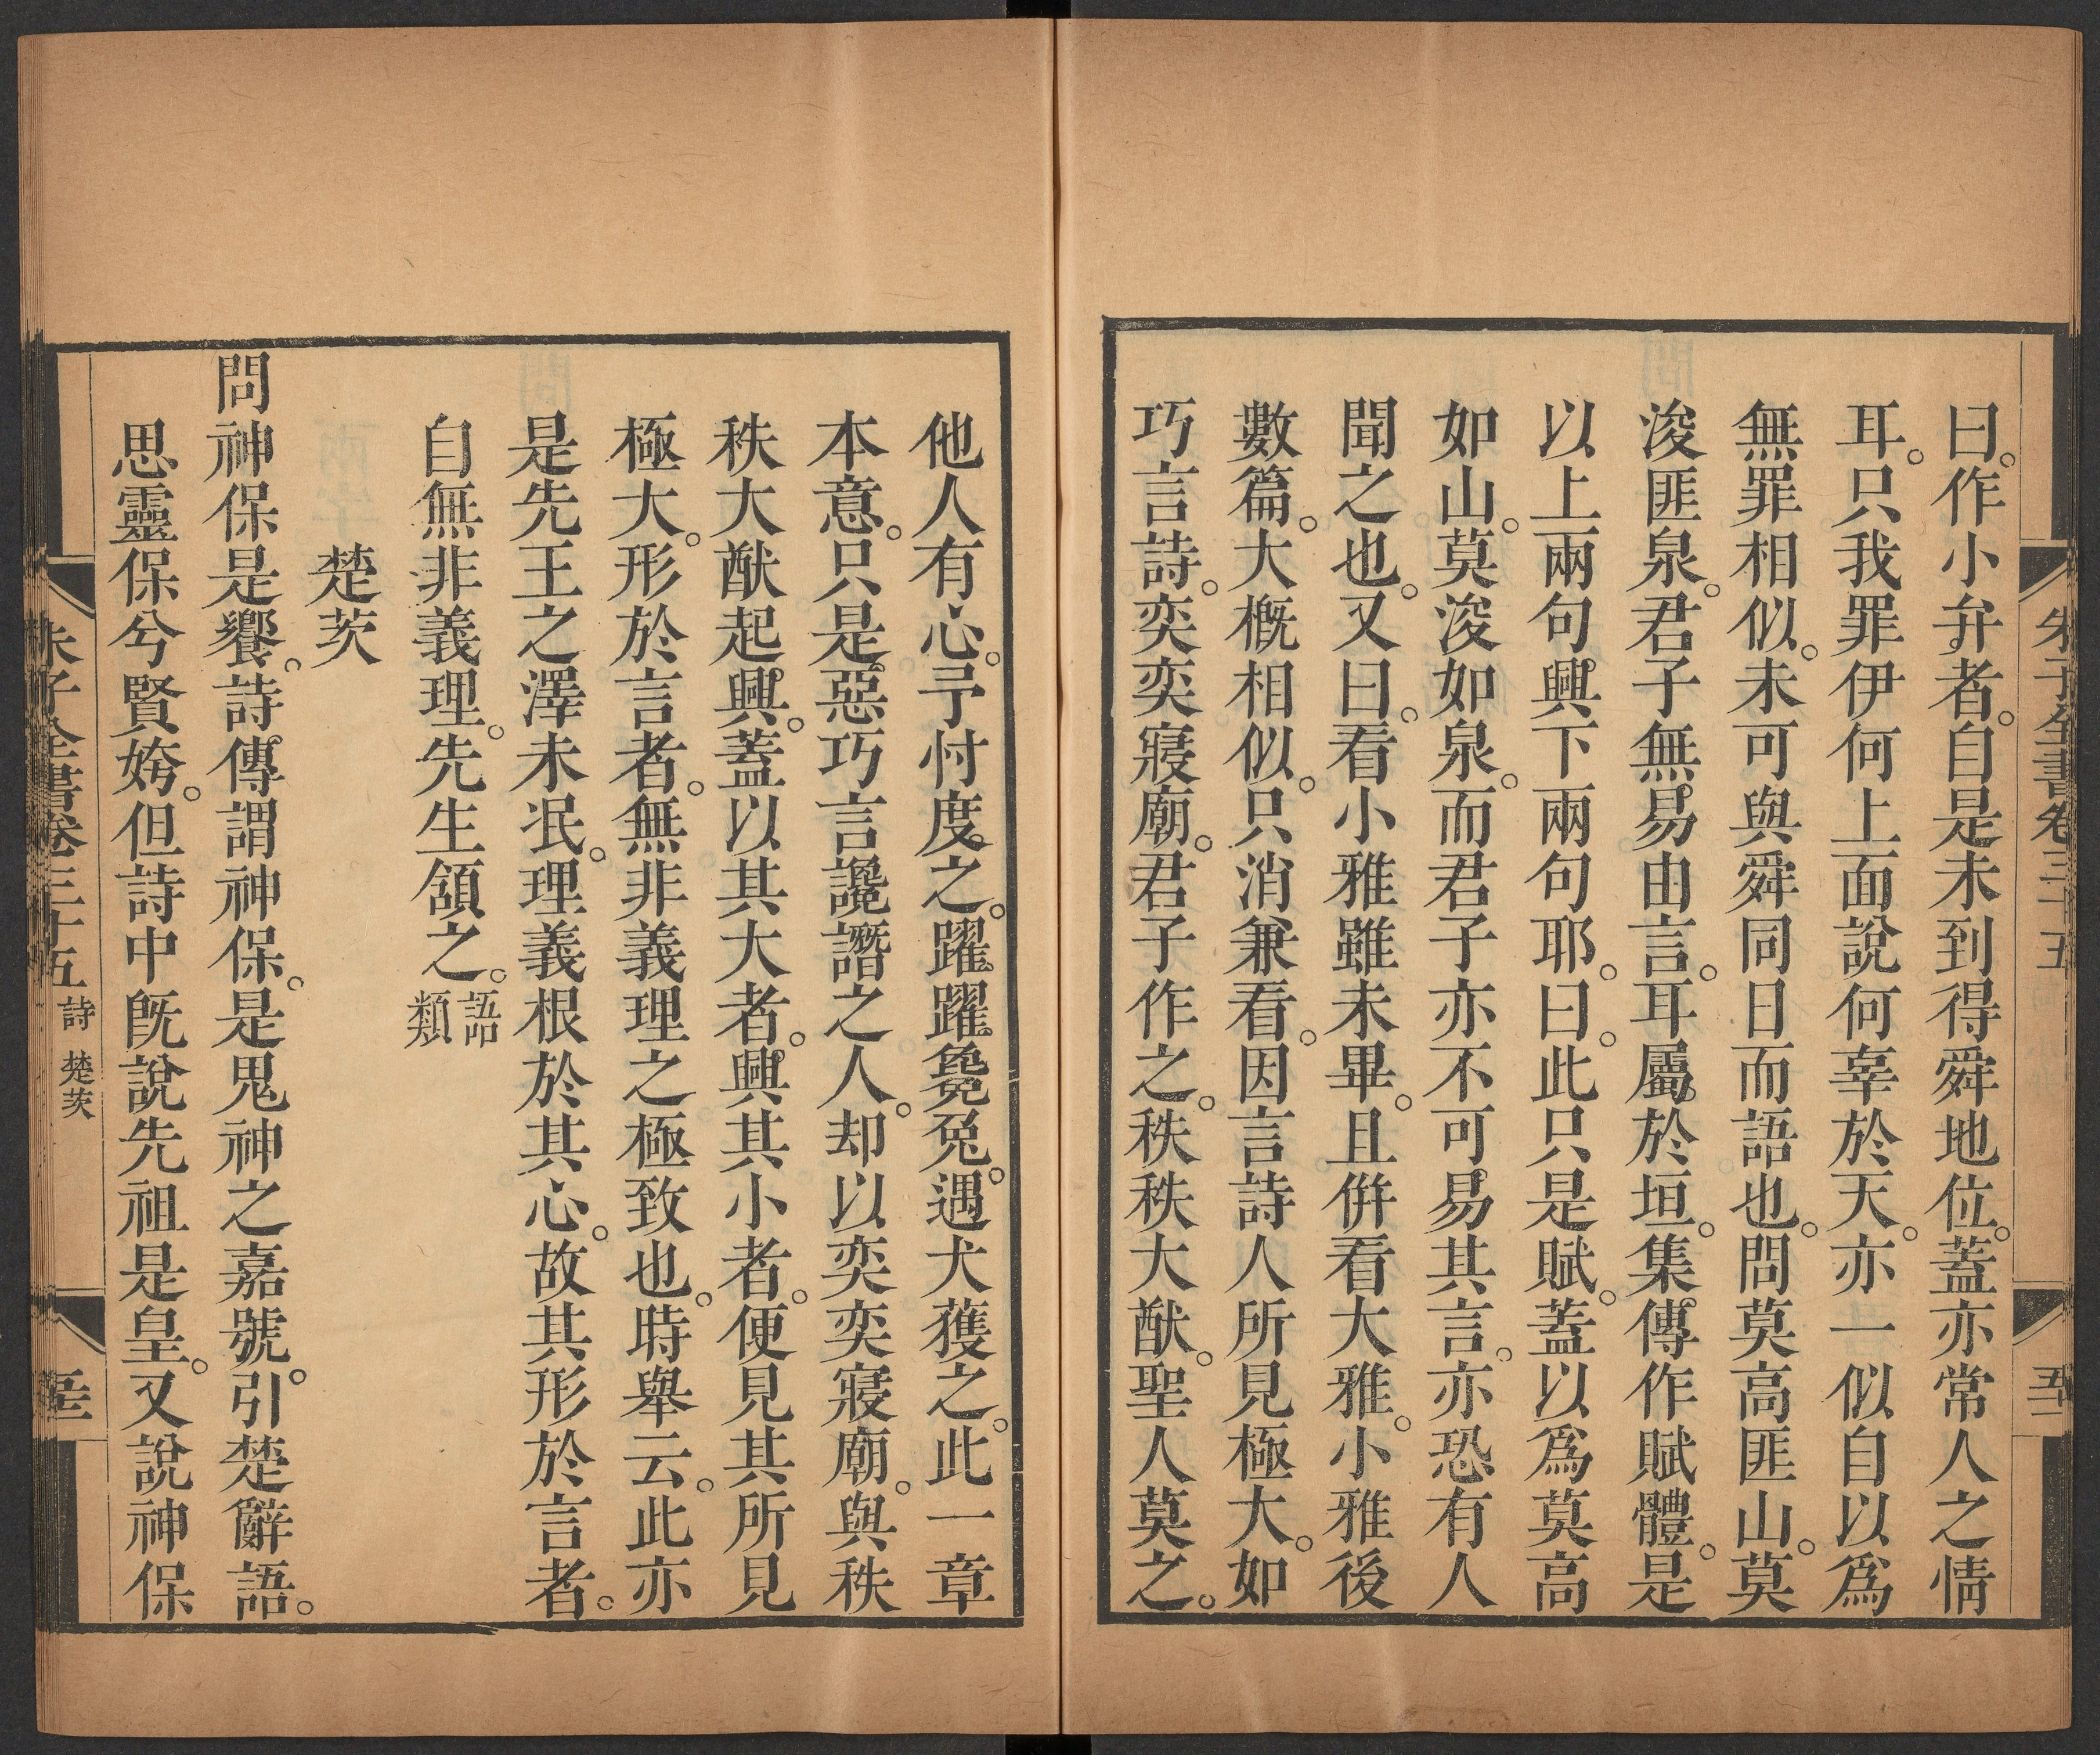 曰。作小弁者。自是未到得舜地位。蓋亦常人之情
耳。只我罪伊何上面說何辜於天。亦一似自以爲
無罪相似。未可與舜同日而語也。問莫高匪山。莫
浚匪泉。君子無易由言。耳屬於垣。集傳作賦體。是
以上兩句興下兩句耶。曰。此只是賦。蓋以爲莫高
如山。莫浚如泉。而君子亦不可易其言。亦恐有人
聞之也。又曰。看小雅雖未畢。且倂看大雅。小雅後
數篇。大概相似。只消兼看。因言詩人所見極大。如
巧言詩。奕奕寢廟。君子作之。秩秩大猷。聖人莫之。
他人有心。予忖度之。躍躍毚兔。遇犬獲之。此一章
本意。只是惡巧言讒譖之人。却以奕奕寢廟。與秩
秩大猷起興。蓋以其大者。興其小者。便見其所見
極大。形於言者。無非義理之極致也。時舉云。此亦
是先王之澤未泯。理義根於其心。故其形於言者。
自無非義理。先生頷之。語類
楚茨
問神保是饗。詩傳謂神保。是鬼神之嘉號。引楚辭語。
思靈保兮賢姱。但詩中旣說先祖是皇。又說神保
朱子全書卷三十五 詩 楚茨